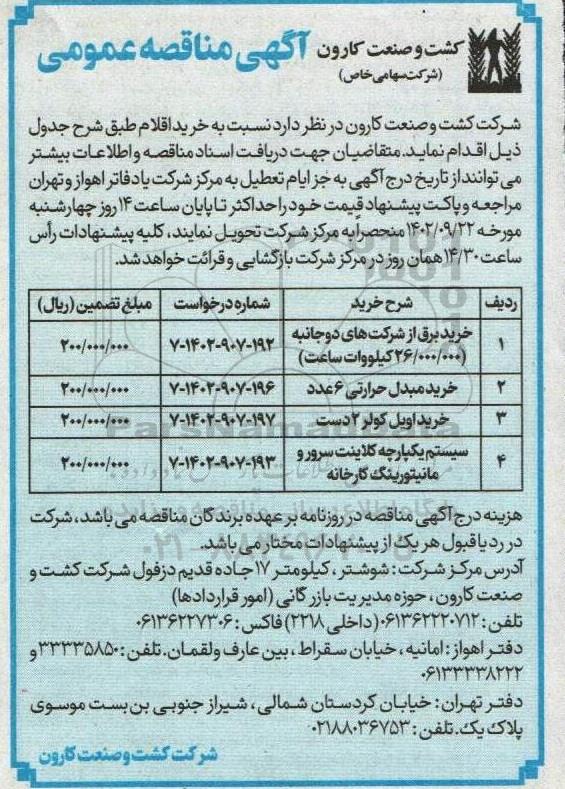 کشت و صنعت کارون
(شرکت سهامی خاص)
آگهی مناقصه عمومی
شرکت کشت و صنعت کارون در نظر دارد نسبت به خرید اقلام طبق شرح جدول
ذیل اقدام نماید. متقاضیان جهت دریافت اسناد مناقصه و اطلاعات بیشتر
می توانند از تاریخ درج آگهی به جز ایام تعطیل به مرکز شرکت یا دفاتر اهواز و تهران
مراجعه و پاکت پیشنهاد قیمت خود را حداکثر تا پایان ساعت ۱۴ روز چهارشنبه
مورخه ۱۴۰۲/۰۹/۲۲ منحصراً به مرکز شرکت تحویل نمایند، کلیه پیشنهادات رأس
ساعت ۱۴/۳۰ همان روز در مرکز شرکت بازگشایی و قرائت خواهد شد.
ردیف شرح خرید شماره درخواست مبلغ تضمین (ریال)
۱ خرید برق از شرکت های دوجانبه (۲۶/۰۰۰/۰۰۰ کیلووات ساعت) ۷-۱۴۰۲-۹۰۷-۱۹۲ ۲۰۰/۰۰۰/۰۰۰
۲ خرید مبدل حرارتی ۶ عدد ۷-۱۴۰۲-۹۰۷-۱۹۶ ۲۰۰/۰۰۰/۰۰۰
۳ خرید اویل کولر ۲ دست ۷-۱۴۰۲-۹۰۷-۱۹۷ ۲۰۰/۰۰۰/۰۰۰
۴ سیستم یکپارچه کلاینت سرور و مانیتورینگ کارخانه ۷-۱۴۰۲-۹۰۷-۱۹۳ ۲۰۰/۰۰۰/۰۰۰
هزینه درج آگهی مناقصه در روزنامه بر عهده برندگان مناقصه می باشد، شرکت
در رد یا قبول هر یک از پیشنهادات مختار می باشد.
آدرس مرکز شرکت: شوشتر، کیلومتر ۱۷ جاده قدیم دزفول شرکت کشت و
صنعت کارون، حوزه مدیریت بازرگانی (امور قراردادها)
تلفن: ۰۶۱۳۶۲۲۰۷۱۲ (داخلی ۲۲۱۸) فاکس: ۰۶۱۳۶۲۲۷۳۰۶
دفتر اهواز: امانیه، خیابان سقراط، بین عارف ولقمان. تلفن: ۳۳۳۳۵۸۵۰ و
۰۶۱۳۳۳۳۸۲۲۲
دفتر تهران: خیابان کردستان شمالی، شیراز جنوبی بن بست موسوی
پلاک یک. تلفن: ۰۲۱۸۸۰۳۶۷۵۳
شرکت کشت و صنعت کارون